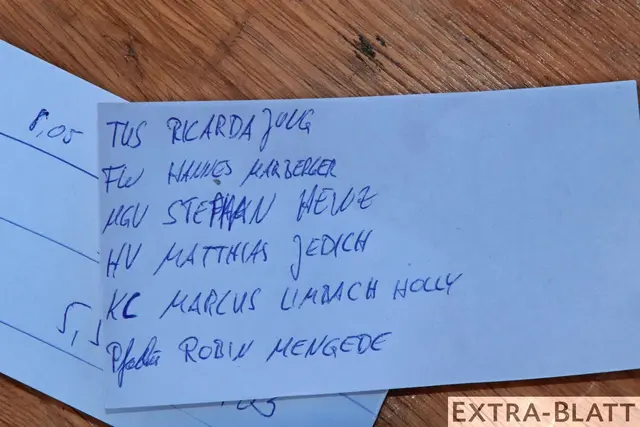 8,05
TUS RICARDA JUNG
FW HANNES MARBERGER
MGV STEPHAN HEINZ
HV MATTHIAS JEDICH
KC MARCUS LIMBACH HOLLY
5,5
ROBIN MENGEDE
EXTRA-BLATT